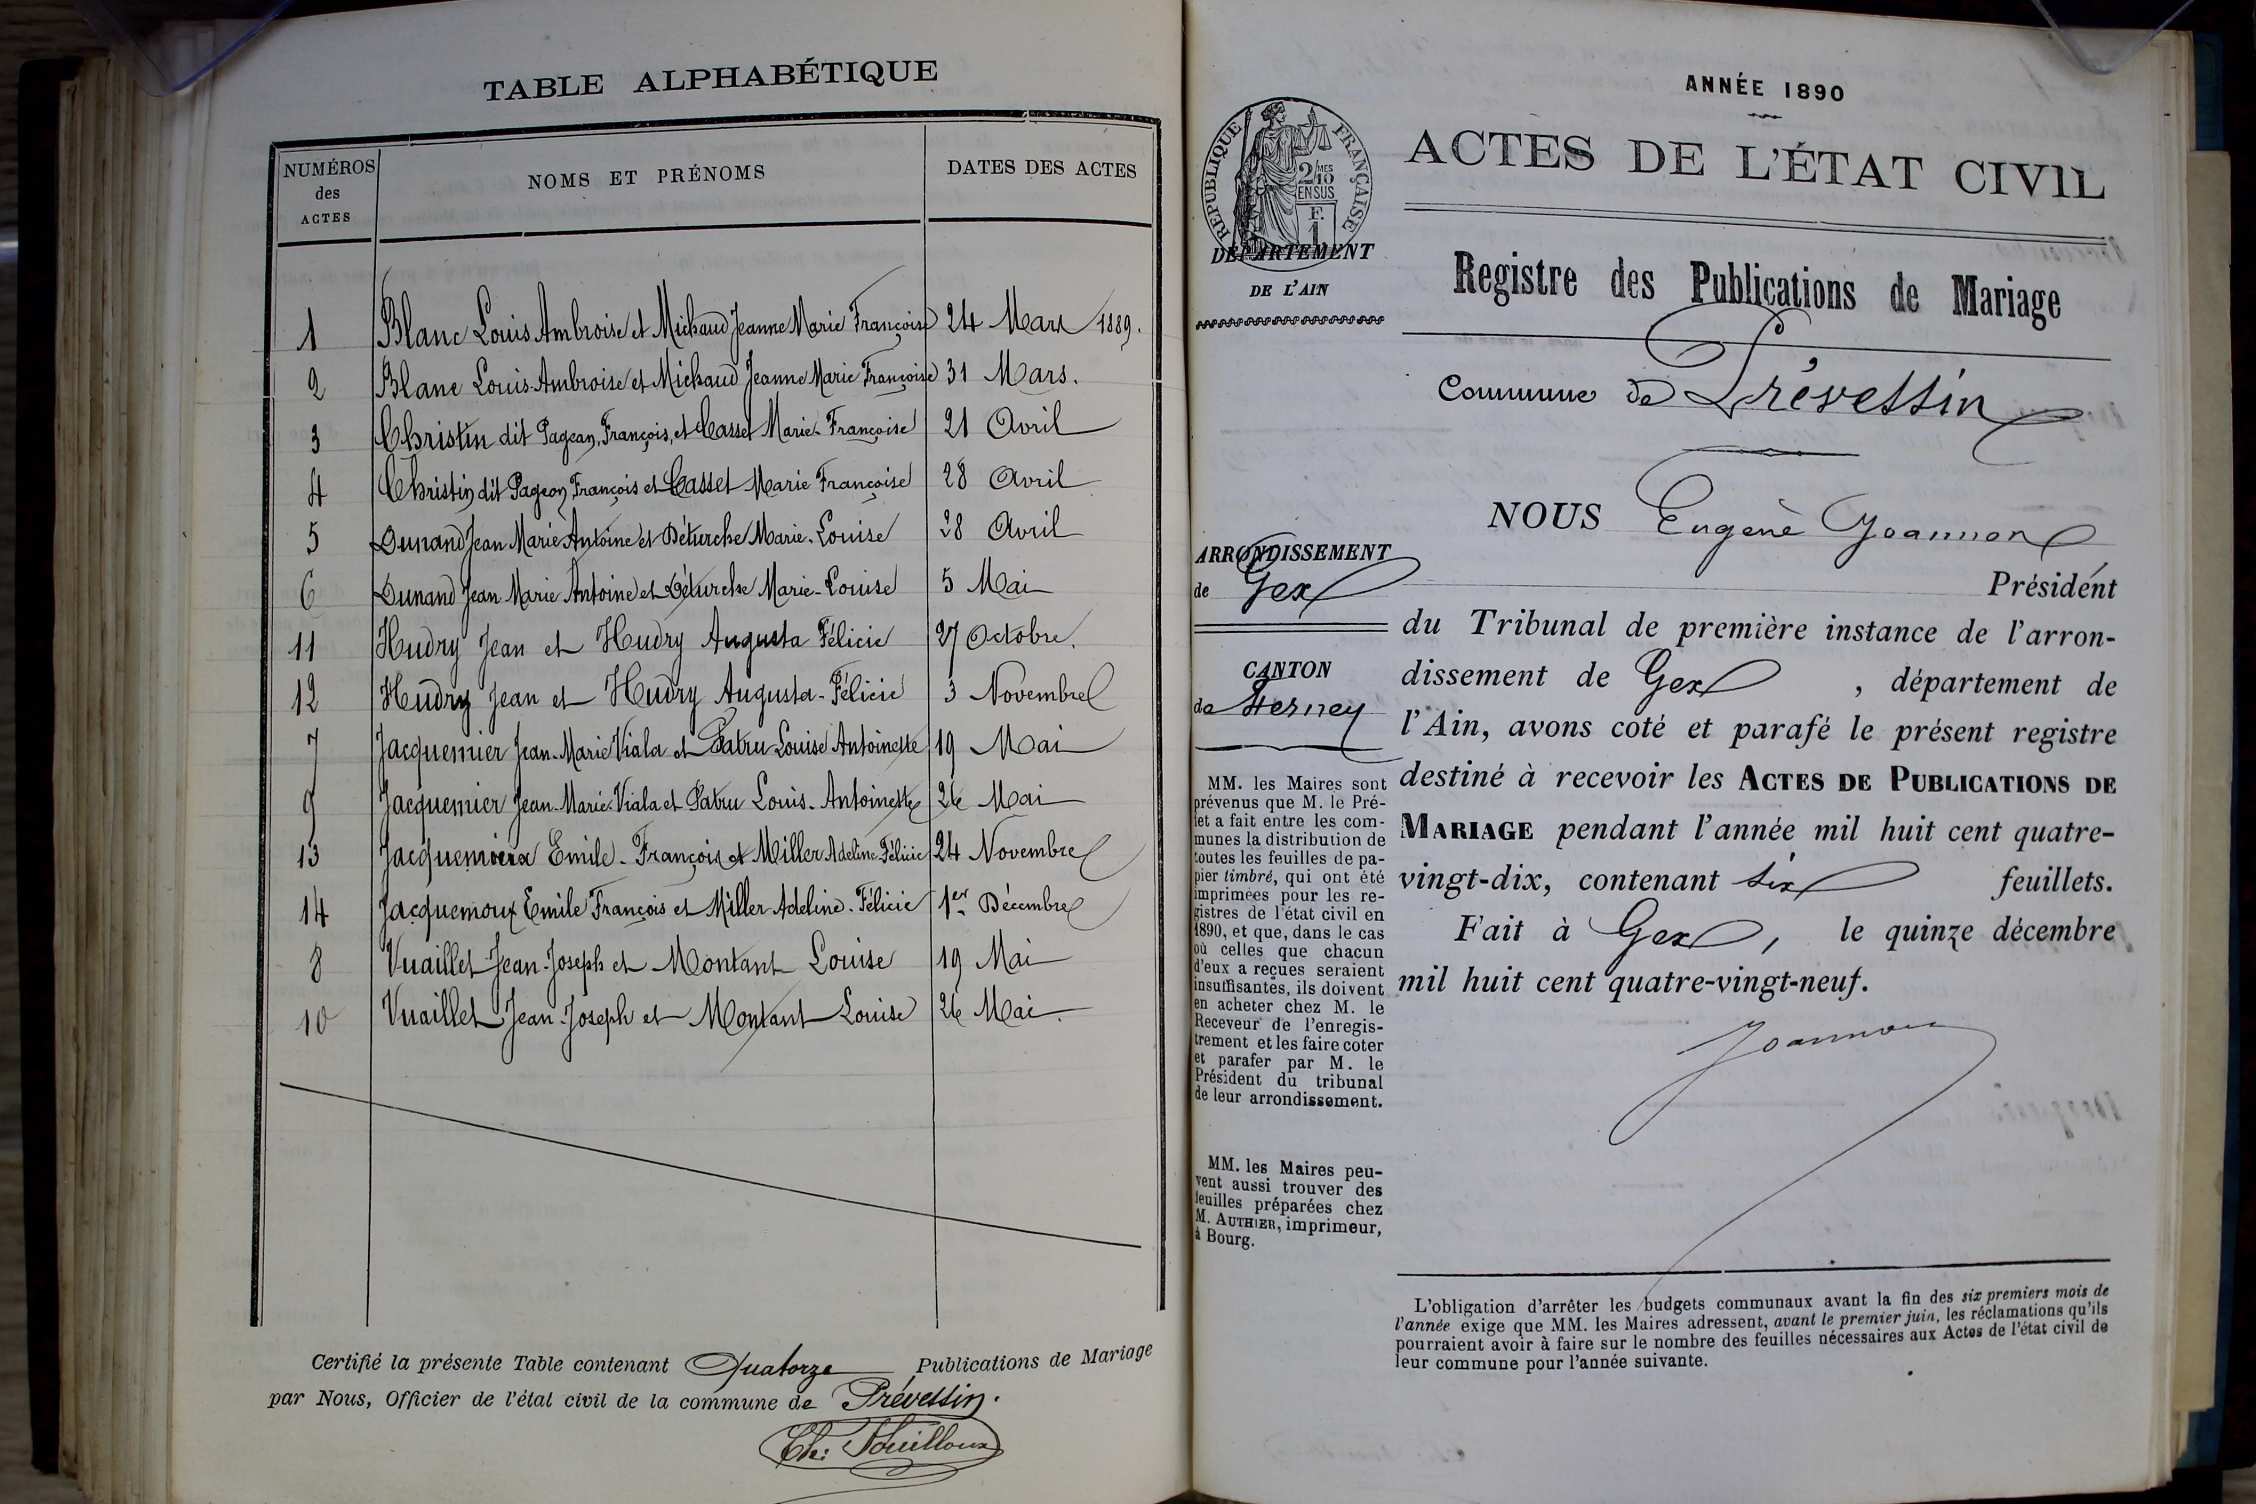 TABLE ALPHABÉTIQUE
NUMÉROS des ACTES
NOMS ET PRÉNOMS
DATES DES ACTES
1 Blanc Louis Ambroise et Michaud Jeanne Marie Françoise 24 Mars 1889.
2 Blanc Louis Ambroise et Michaud Jeanne Marie Françoise 31 Mars.
3 Christin dit Pageon, François, et Casset Marie-Françoise 21 Avril
4 Christin dit Pageon François et Casset Marie Françoise 28 Avril
5 Dunand Jean Marie Antoine et Déturche Marie-Louise 28 Avril
6 Dunand Jean Marie Antoine et Déturche Marie-Louise 5 Mai
11 Hudry Jean et Hudry Augusta Félicie 27 Octobre.
12 Hudry Jean et Hudry Augusta-Félicie 3 Novembre
7 Jacquemier Jean-Marie Viala et Patru Louise Antoinette 19 Mai
9 Jacquemier Jean-Marie-Viala et Patru Louis-Antoinette 26 Mai
13 Jacquemoux Emile-François et Miller Adeline-Félicie 24 Novembre
14 Jacquemoux Emile François et Miller Adeline-Félicie 1er Décembre
8 Vuaillet Jean-Joseph et Montant Louise 19 Mai
10 Vuaillet Jean-Joseph et Montant Louise 26 Mai.
Certifié la présente Table contenant Quatorze Publications de Mariage
par Nous, Officier de l'état civil de la commune de Prévessin.
ANNÉE 1890
ACTES DE L'ÉTAT CIVIL
RÉPUBLIQUE FRANÇAISE
2/10 MES
EN SUS
F.
1
DÉPARTEMENT
DE L'AIN
Registre des Publications de Mariage
Commune de Prévessin
NOUS Eugène Joannon
ARRONDISSEMENT
de Gex
CANTON
de Ferney
Président
du Tribunal de première instance de l'arron-
dissement de Gex, département de
l'Ain, avons coté et parafé le présent registre
destiné à recevoir les ACTES DE PUBLICATIONS DE
MARIAGE pendant l'année mil huit cent quatre-
vingt-dix, contenant six feuillets.
Fait à Gex, le quinze décembre
mil huit cent quatre-vingt-neuf.
Joannon
MM. les Maires sont
prévenus que M. le Pré-
fet a fait entre les com-
munes la distribution de
toutes les feuilles de pa-
pier timbré, qui ont été
imprimées pour les re-
gistres de l'état civil en
1890, et que, dans le cas
où celles que chacun
d'eux a reçues seraient
insuffisantes, ils doivent
en acheter chez M. le
Receveur de l'enregis-
trement et les faire coter
et parafer par M. le
Président du tribunal
de leur arrondissement.
MM. les Maires peu-
vent aussi trouver des
feuilles préparées chez
M. AUTHIER, imprimeur,
à Bourg.
L'obligation d'arrêter les budgets communaux avant la fin des six premiers mois de
l'année exige que MM. les Maires adressent, avant le premier juin, les réclamations qu'ils
pourraient avoir à faire sur le nombre des feuilles nécessaires aux Actes de l'état civil de
leur commune pour l'année suivante.